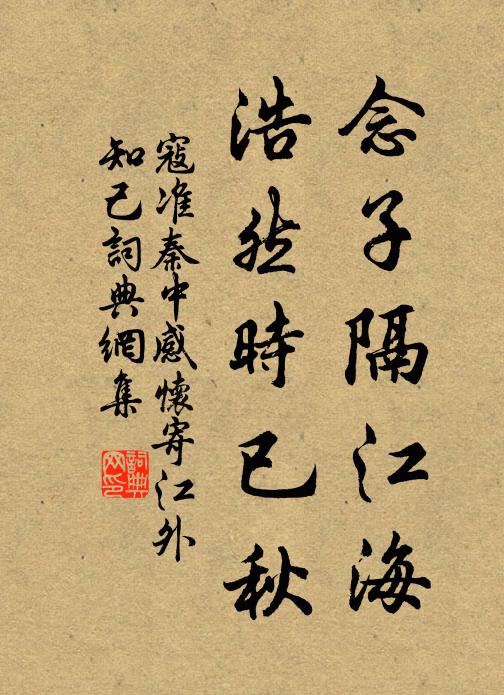 念子隔江海
浩然時已秋
寇准秦中感懷寄江外
知己詞典網集
詞典
网印